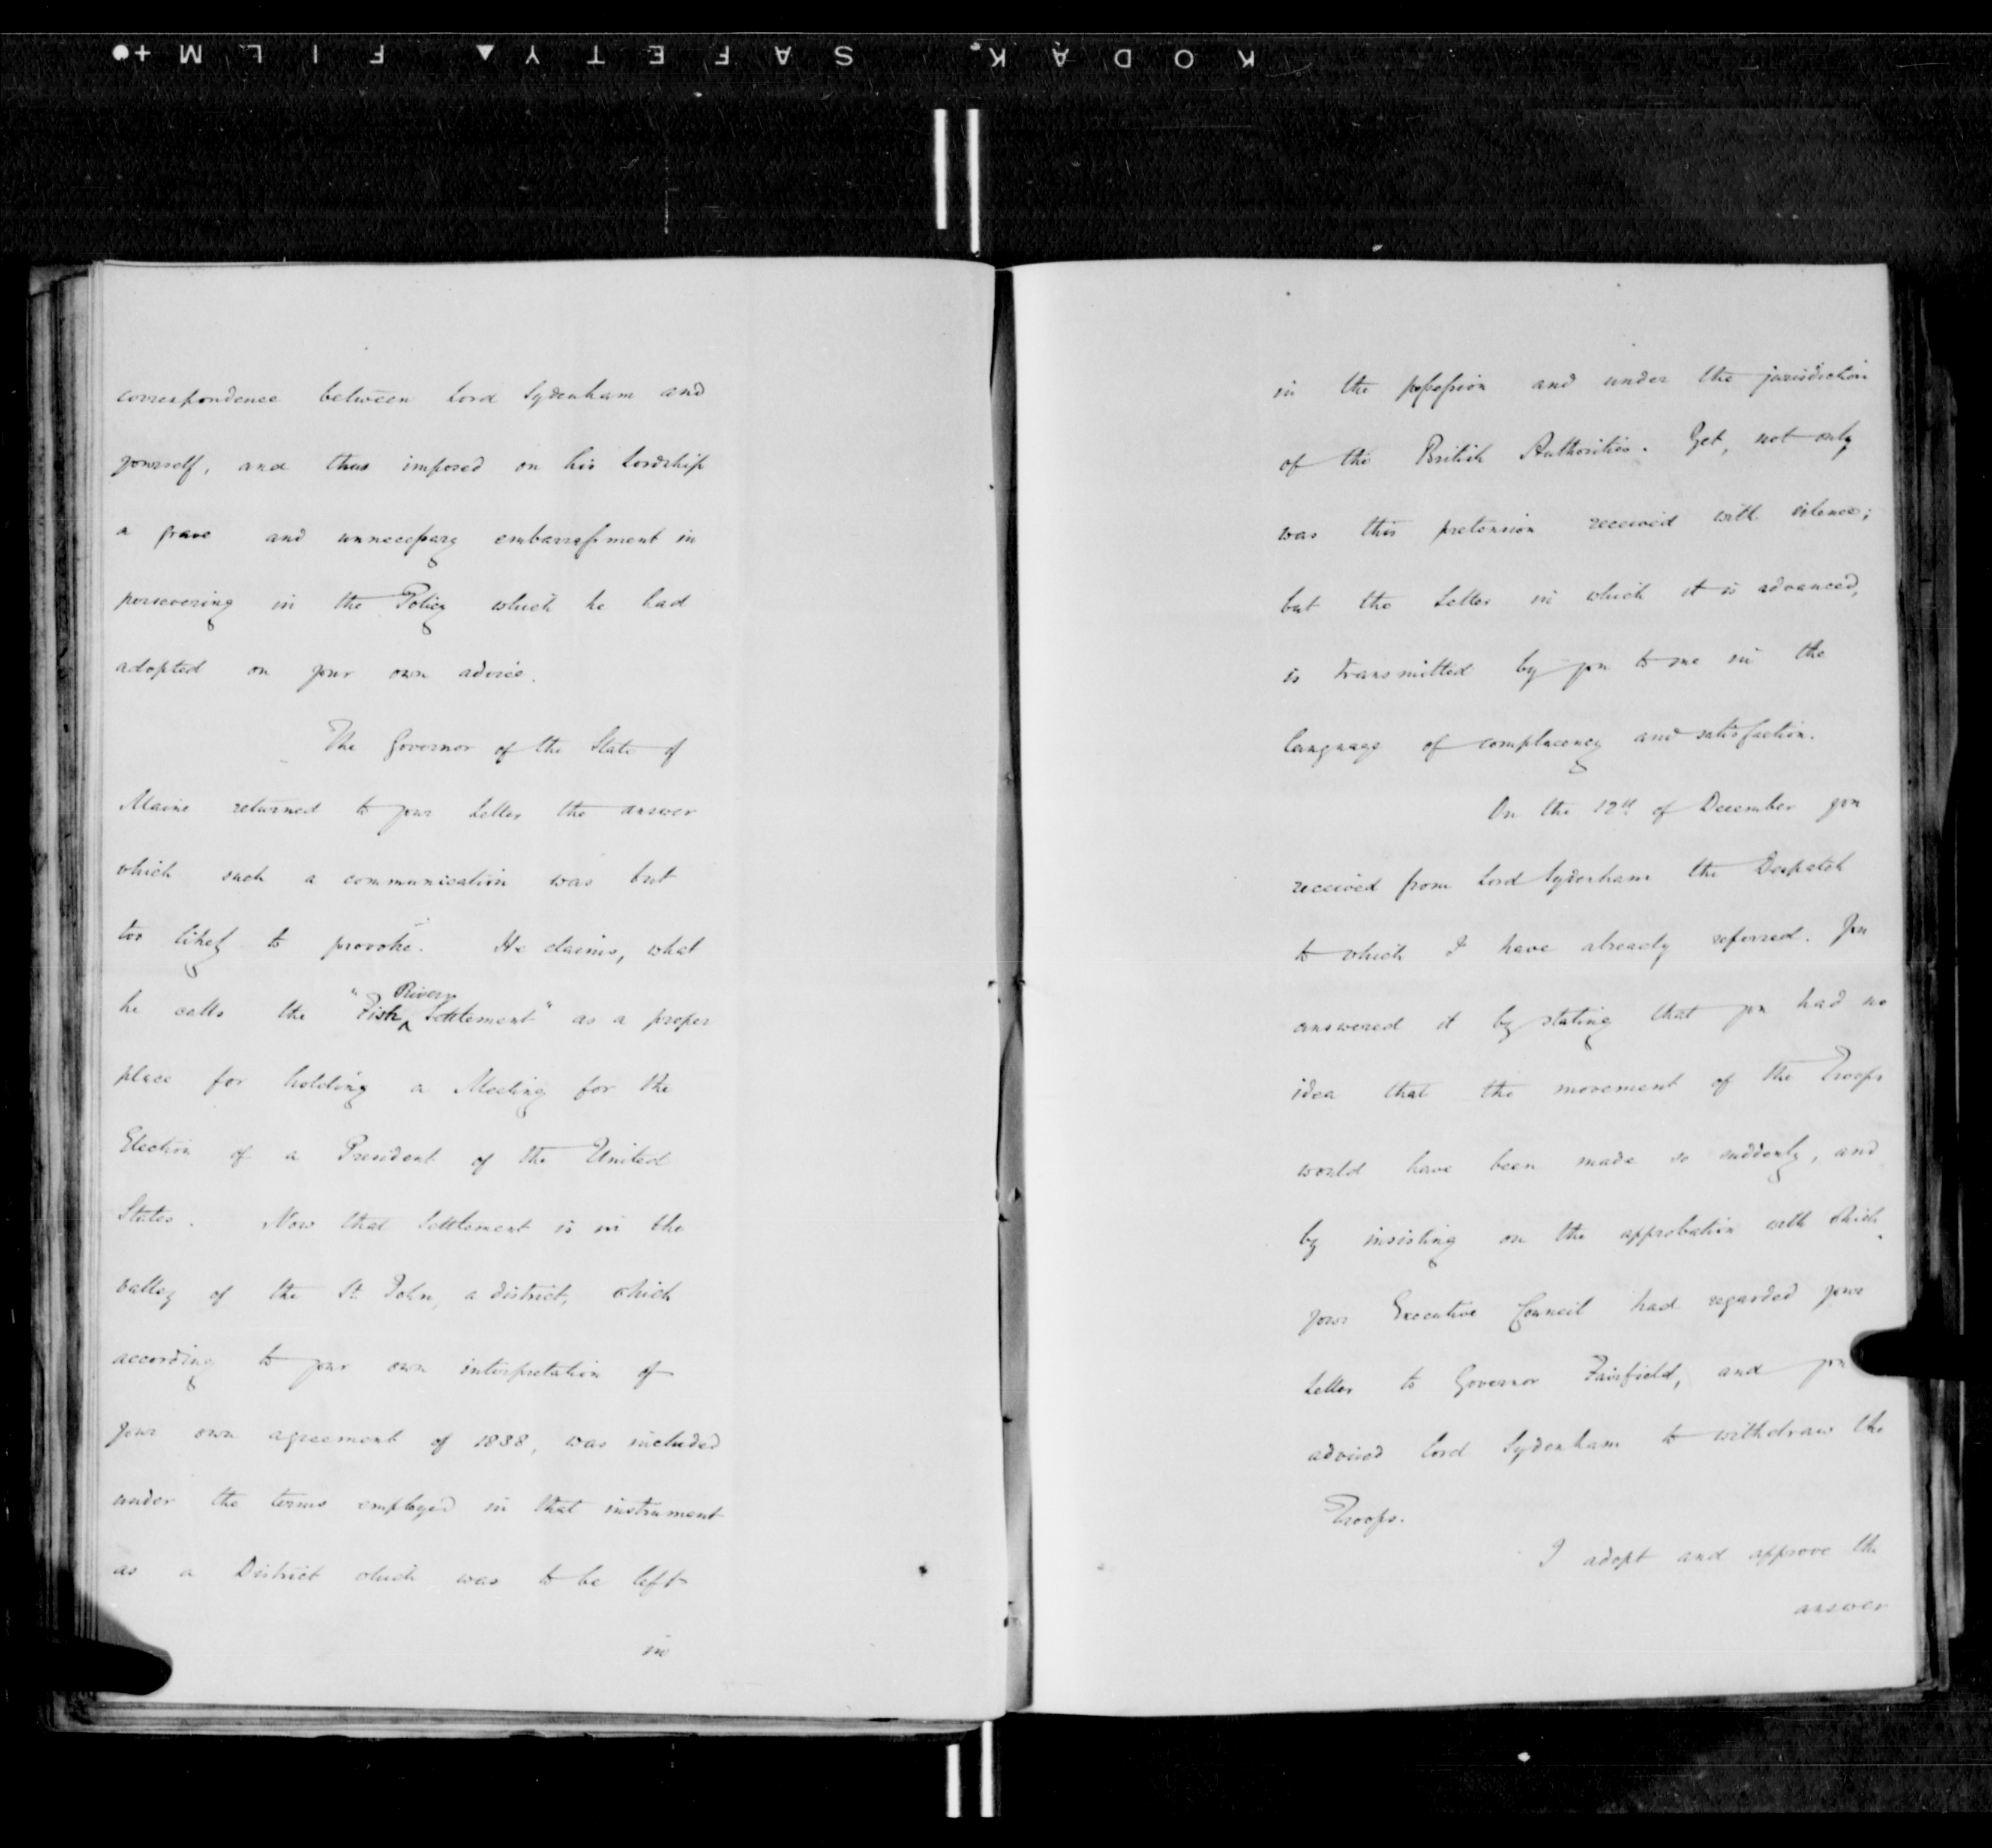 KODAK SAFETY FILM
correspondence between Lord Sydenham and
yourself, and thus imposed on his Lordship
a grave and unnecessary embarrassment in
persevering in the Policy which he had
adopted on your own advice.
The Governor of the State of
Maine returned to your Letter the answer
which such a communication was but
too likely to provoke. He claims, what
he calls the "Fish River Settlement" as a proper
place for holding a Meeting for the
Election of a President of the United
States. Now that Settlement is in the
valley of the St. John, a district, which
according to your own interpretation of
your own agreement of 1838, was included
under the terms employed in that instrument
as a District which was to be left
in
in the possession and under the jurisdiction
of the British Authorities. Yet, not only
was this pretension received with silence;
but the Letter in which it is advanced,
is transmitted by you to me in the
language of complacency and satisfaction.
On the 12th of December you
received from Lord Sydenham the Despatch
to which I have already referred. You
answered it by stating that you had no
idea that the movement of the Troops
would have been made so suddenly, and
by insisting on the approbation with which
your Executive Council had regarded your
Letter to Governor Fairfield, and you
advised Lord Sydenham to withdraw the
Troops.
I adopt and approve the
answer